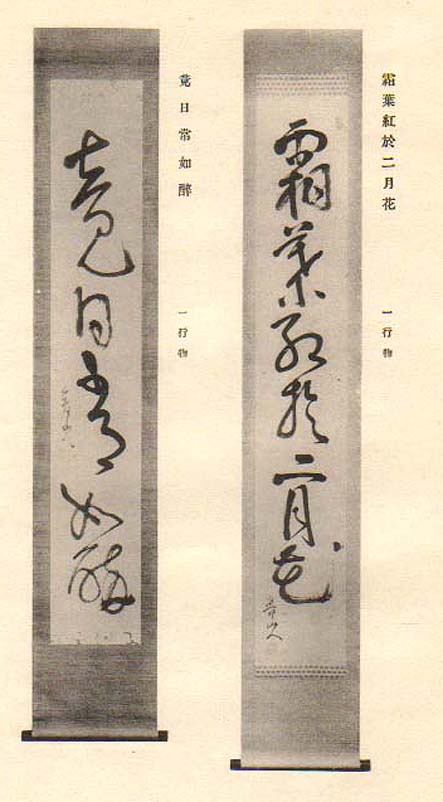 霜葉紅於二月花
一行物
霜葉紅於二月花
竟日常如醉
一行物
竟日常如醉